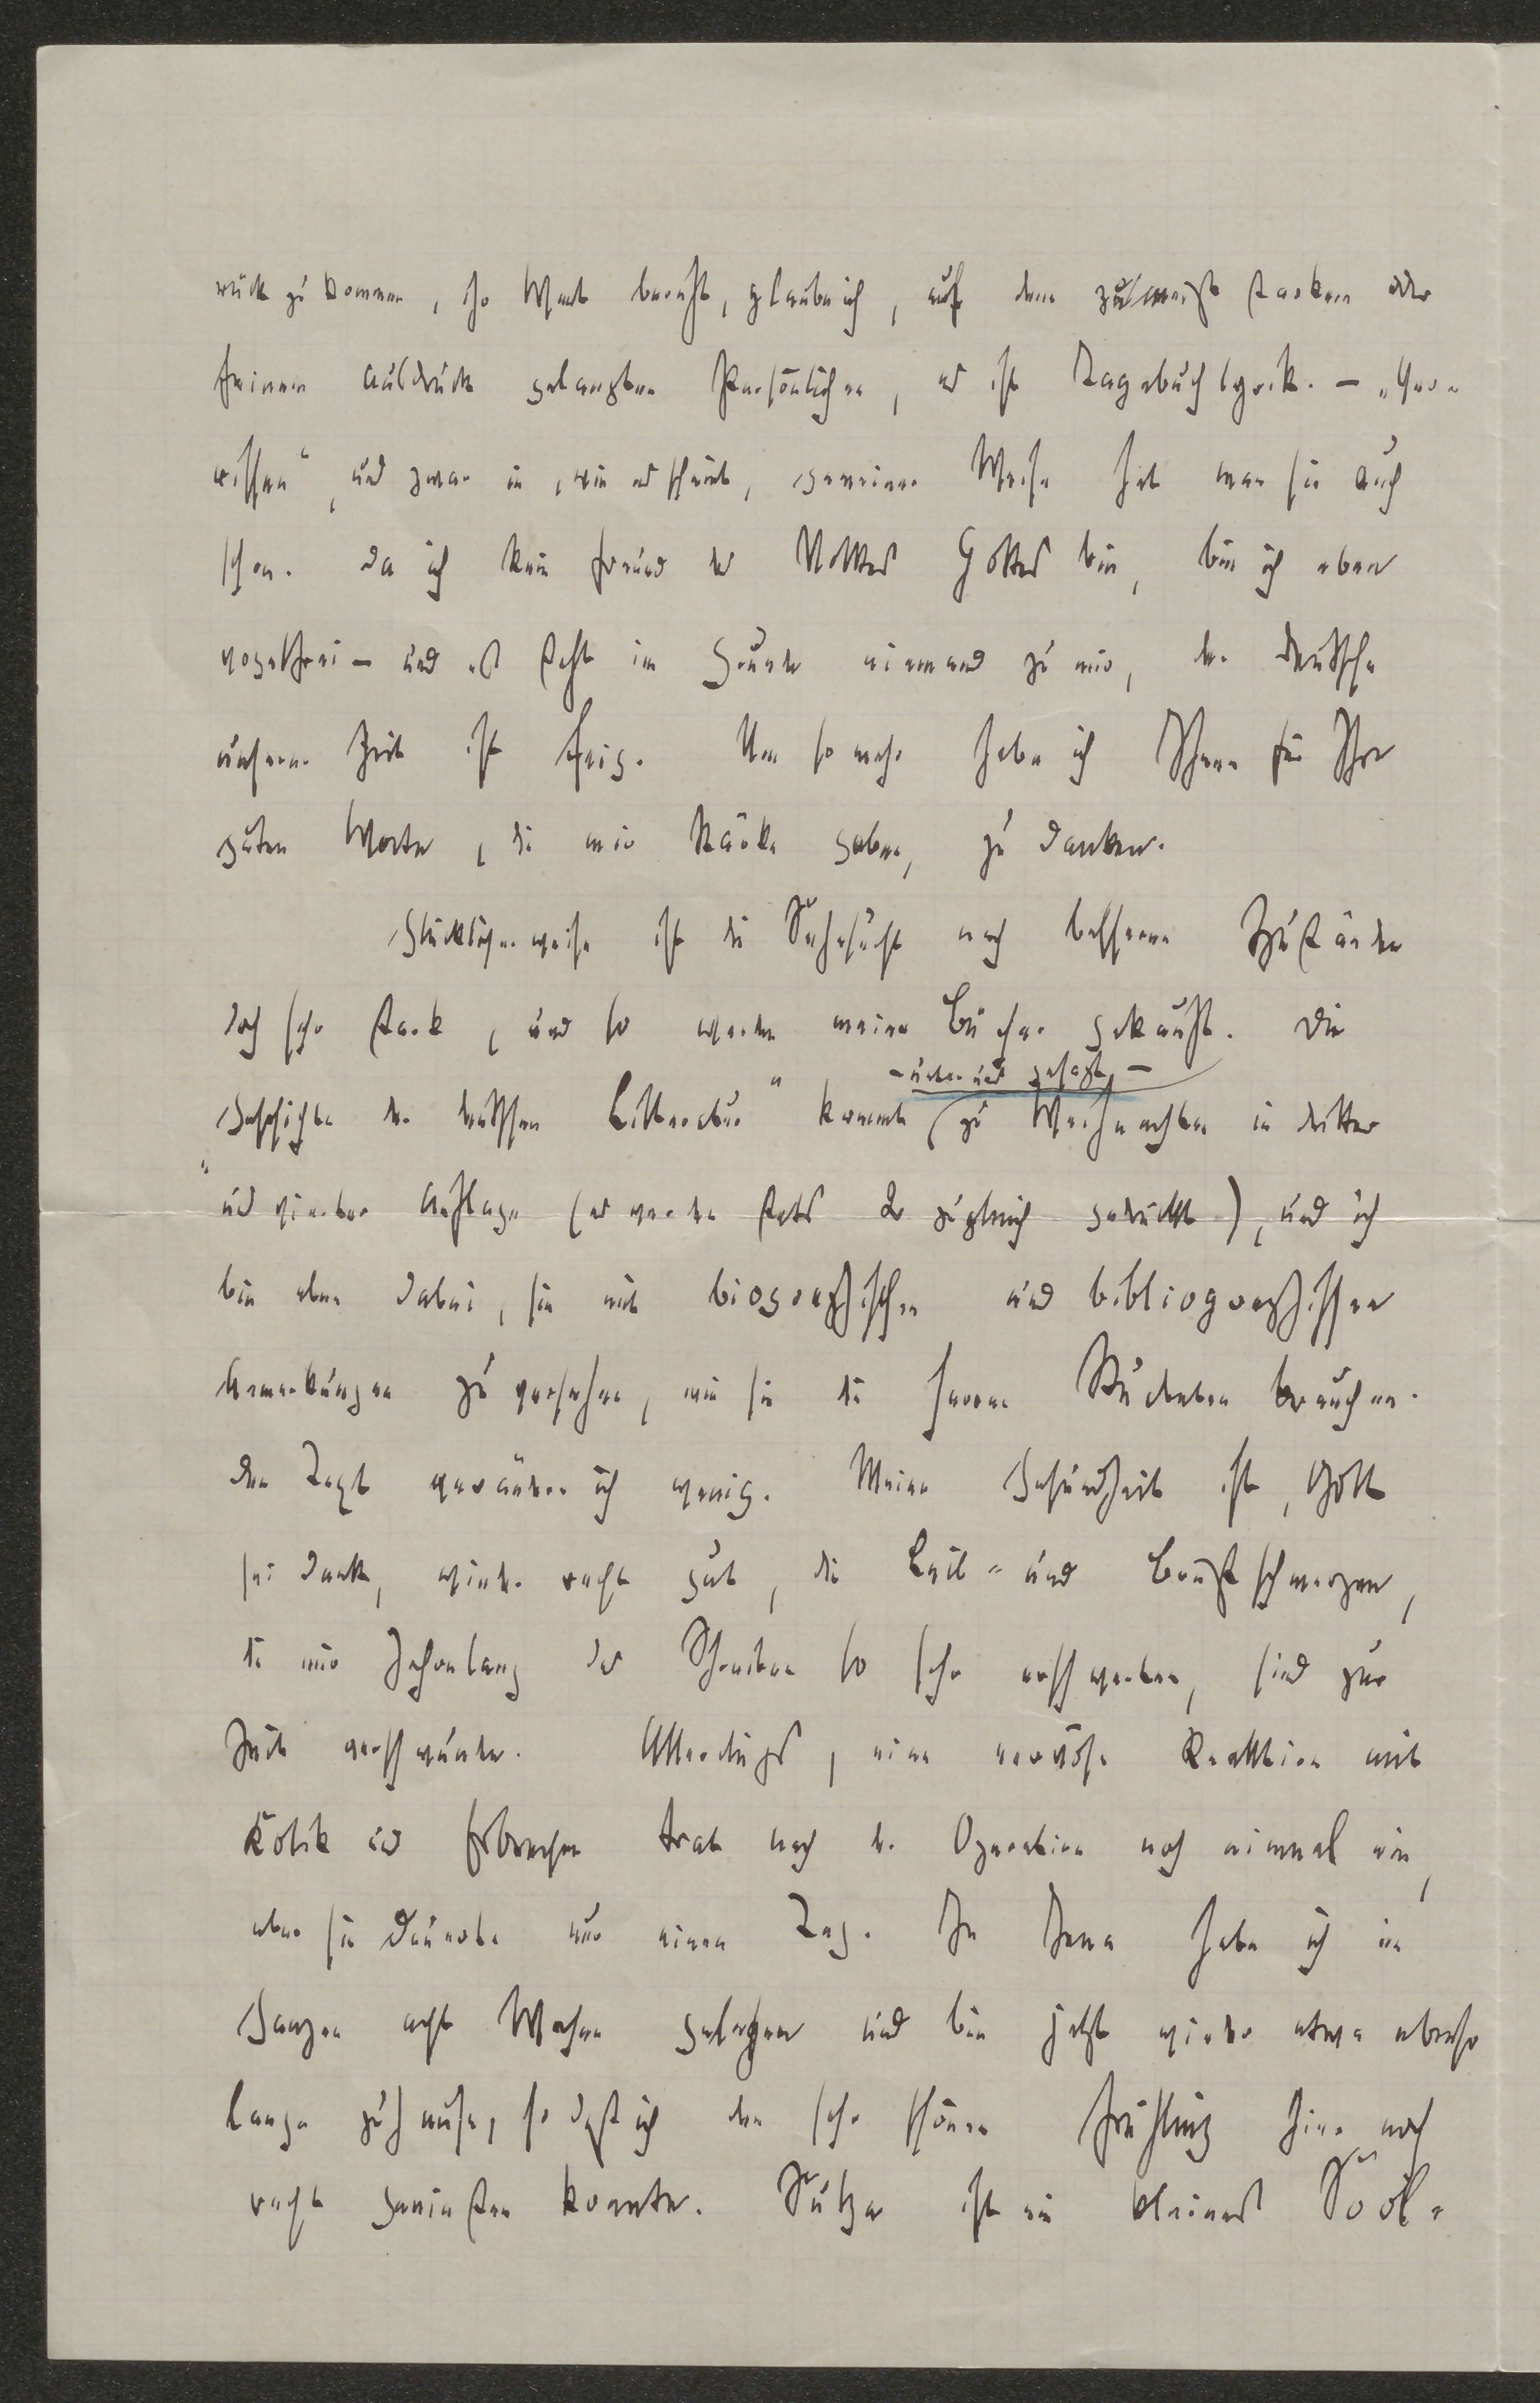 rück zu kommen, ihr Wert beruht, glaube ich, auf dem zumeist starken oder
feinen Ausdruck gelangten Persönlichen, es ist Tagebuchlyrik. – „Ver-
rissen“, und zwar in, wie es scheint, gemeiner Weise hat man sie auch
schon. Da ich kein Freund des Volkes Gottes bin, bin ich eben
vogelfrei – und es steht im Grunde niemand zu mir, der Deutsche
unserer Zeit ist feig. Um so mehr habe ich Ihnen für Ihre
guten Worte, die mir Stärke gaben, zu danken.
Glücklicherweise ist die Sehnsucht nach besseren Zuständen
doch sehr stark, und so werden meine Bücher gekauft. Die
– unter uns gesagt –
„Geschichte der deutschen Litteratur“ kommt (zu Weihnachten in dritter
und vierter Auflage (es werden stets 2 zugleich gedruckt), und ich
bin eben dabei, sie mit biographischen und bibliographischen
Anmerkungen zu versehen, wie sie die Herren Studenten brauchen.
Den Text verändere ich wenig. Meine Gesundheit ist, Gott
sei Dank, wieder recht gut, die Leib- und Brustschmerzen,
die mir Jahrelang das Schreiben so sehr erschwerten, sind zur
Zeit verschwunden. Allerdings, eine nervöse Reaktion mit
Kolik und Erbrechen trat nach der Operation noch einmal ein,
aber sie dauerte nur einen Tag. In Jena habe ich im
Ganzen acht Wochen gelegen und bin jetzt wieder etwa ebenso
lange zuhause, so daß ich den sehr schönen Frühling hier noch
recht genießen konnte. Sulza ist ein kleines Sool-